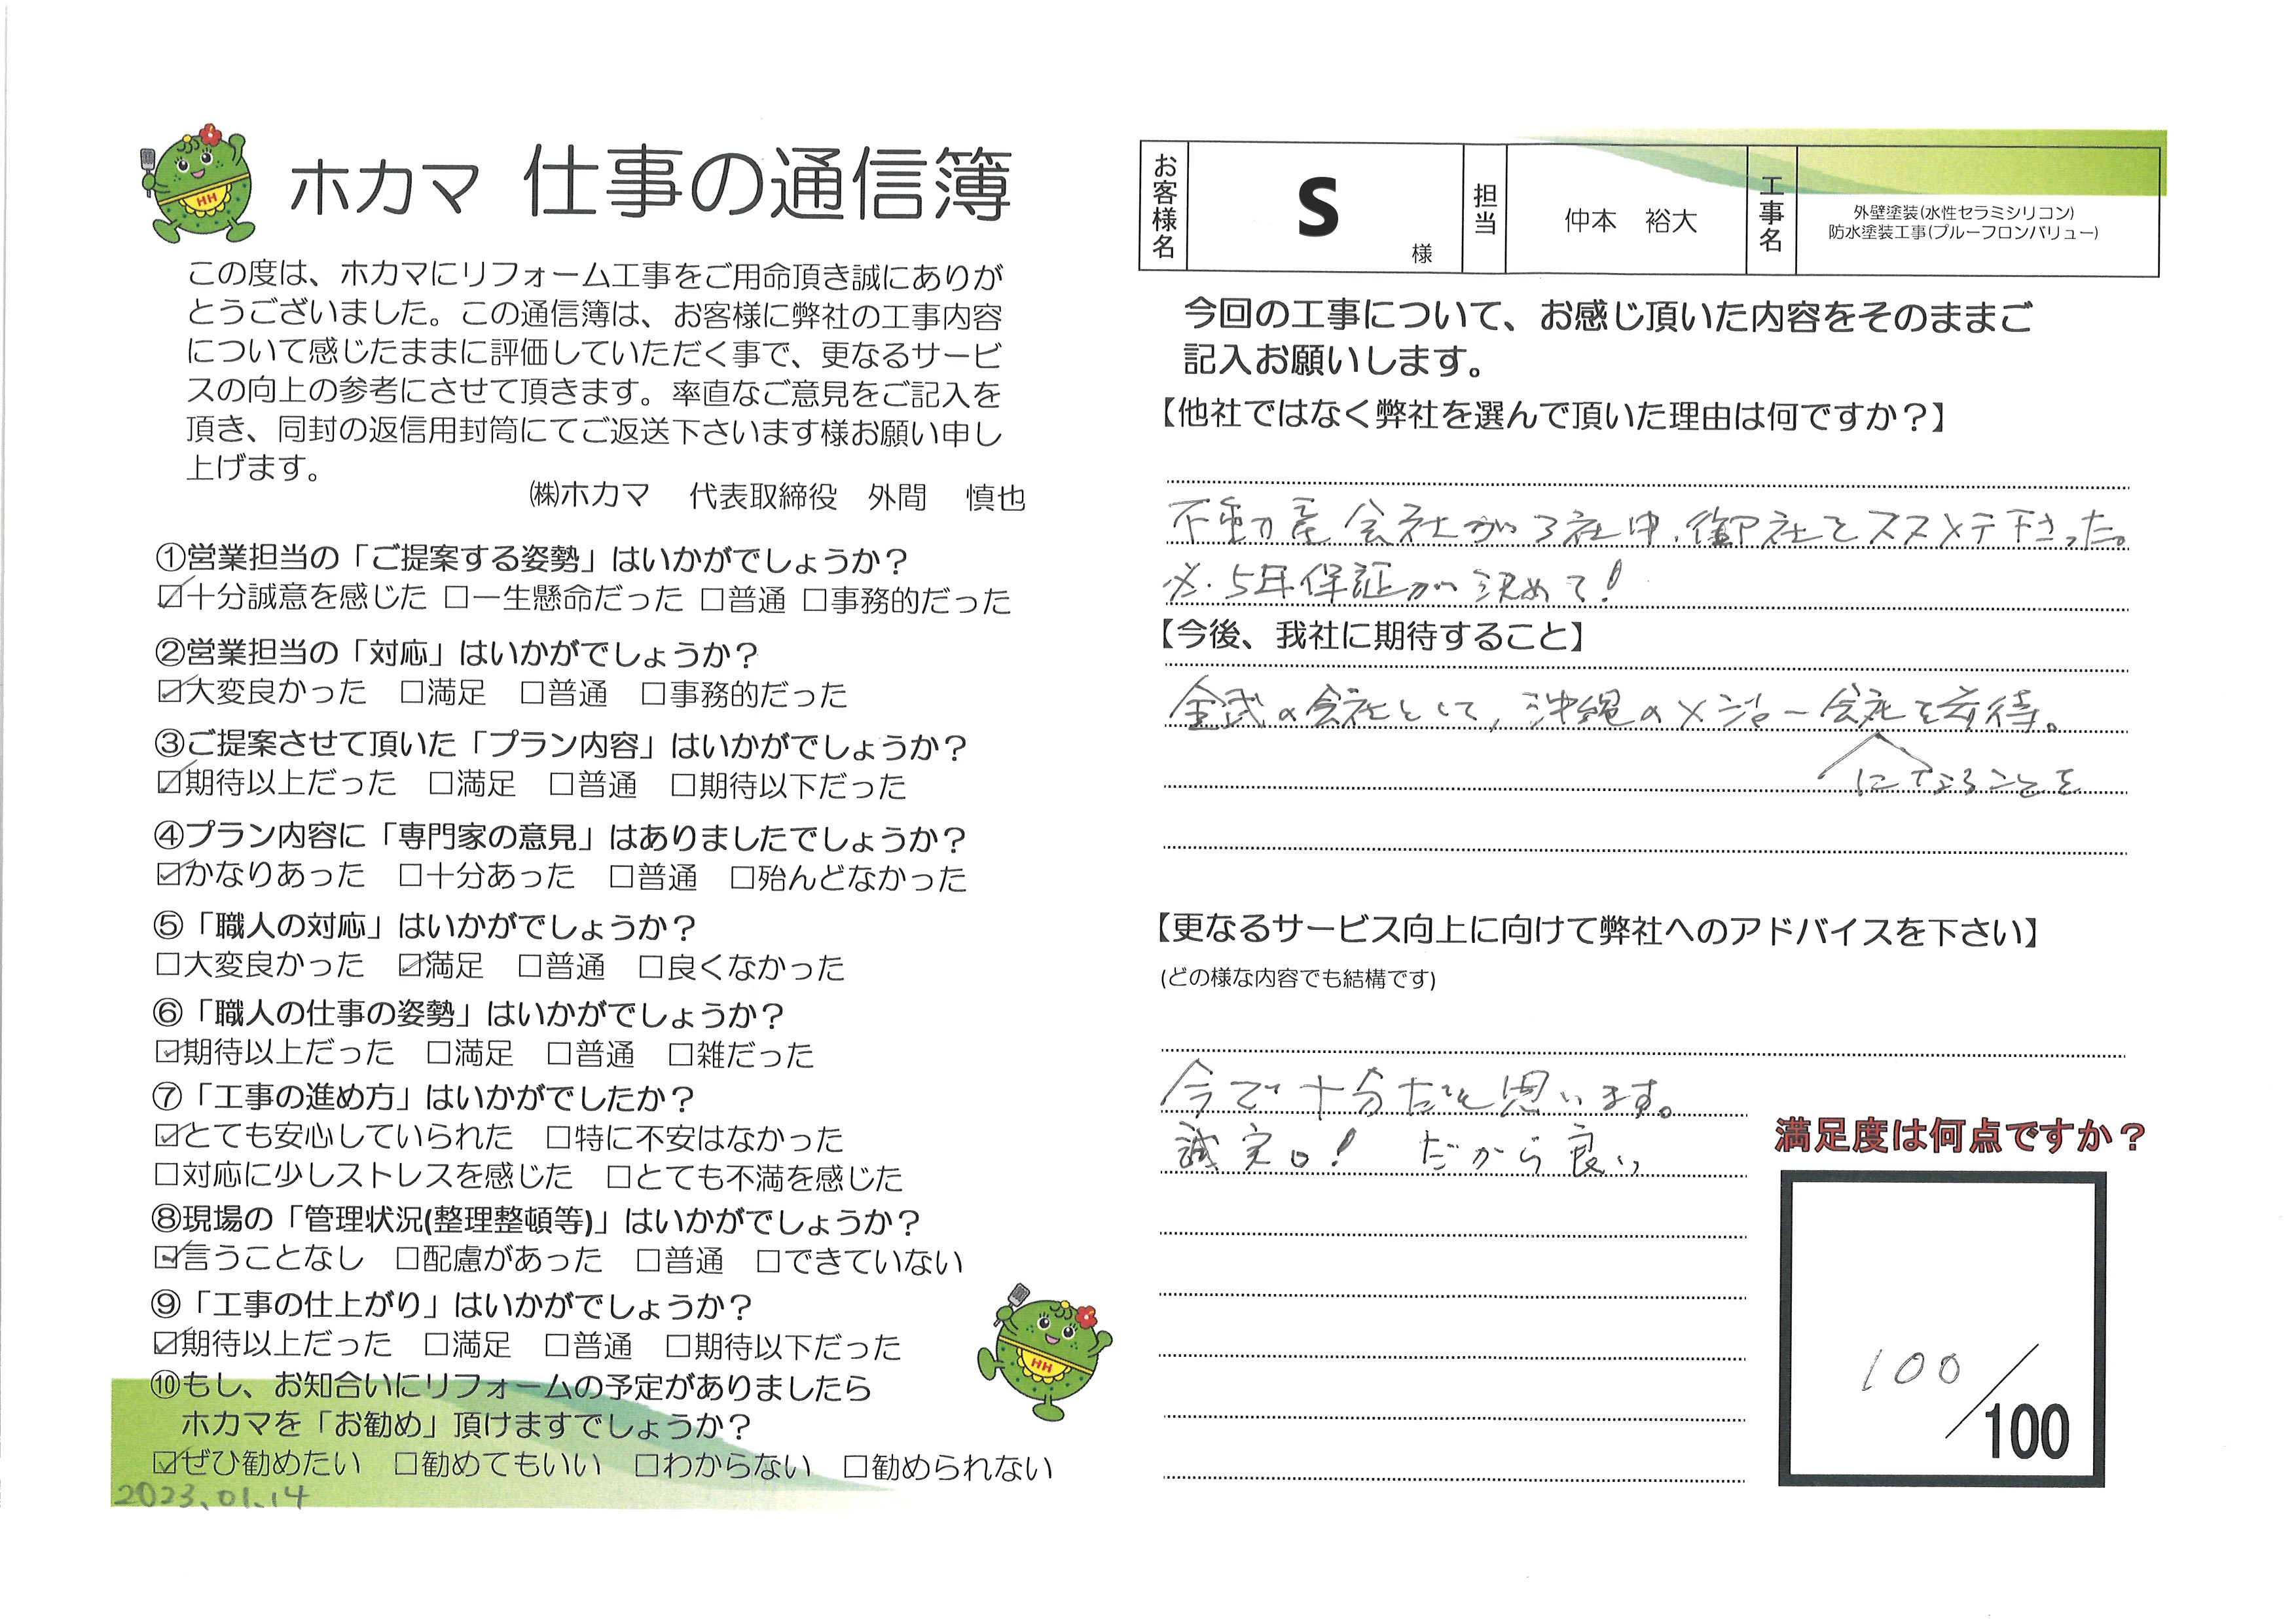 ホカマ 仕事の通信簿
この度は、ホカマにリフォーム工事をご用命頂き誠にありが
とうございました。この通信簿は、お客様に弊社の工事内容
について感じたままに評価していただく事で、更なるサービ
スの向上の参考にさせて頂きます。率直なご意見をご記入を
頂き、同封の返信用封筒にてご返送下さいます様お願い申し
上げます。
㈱ホカマ 代表取締役 外間 慎也
①営業担当の「ご提案する姿勢」はいかがでしょうか？
☑十分誠意を感じた □一生懸命だった □普通 □事務的だった
②営業担当の「対応」はいかがでしょうか？
☑大変良かった □満足 □普通 □事務的だった
③ご提案させて頂いた「プラン内容」はいかがでしょうか？
☑期待以上だった □満足 □普通 □期待以下だった
④プラン内容に「専門家の意見」はありましたでしょうか？
☑かなりあった □十分あった □普通 □殆んどなかった
⑤「職人の対応」はいかがでしょうか？
□大変良かった ☑満足 □普通 □良くなかった
⑥「職人の仕事の姿勢」はいかがでしょうか？
☑期待以上だった □満足 □普通 □雑だった
⑦「工事の進め方」はいかがでしたか？
☑とても安心していられた □特に不安はなかった
□対応に少しストレスを感じた □とても不満を感じた
⑧現場の「管理状況(整理整頓等)」はいかがでしょうか？
☑言うことなし □配慮があった □普通 □できていない
⑨「工事の仕上がり」はいかがでしょうか？
☑期待以上だった □満足 □普通 □期待以下だった
⑩もし、お知合いにリフォームの予定がありましたら
ホカマを「お勧め」頂けますでしょうか？
☑ぜひ勧めたい □勧めてもいい □わからない □勧められない
2023.01.14
HH
HH
お客様名 S 様 担当 仲本 裕大 工事名 外壁塗装(水性セラミシリコン)
防水塗装工事(プルーフロンバリュー)
今回の工事について、お感じ頂いた内容をそのままご
記入お願いします。
【他社ではなく弊社を選んで頂いた理由は何ですか？】
不動産会社が3社中、御社をススメテ下さった。
※. 5年保証が決めて！
【今後、我社に期待すること】
の会社として、沖縄のメジャー会社を期待。
になることを
【更なるサービス向上に向けて弊社へのアドバイスを下さい】
(どの様な内容でも結構です)
今で十分だと思います。
誠実。！ だから良い
満足度は何点ですか？
100/100